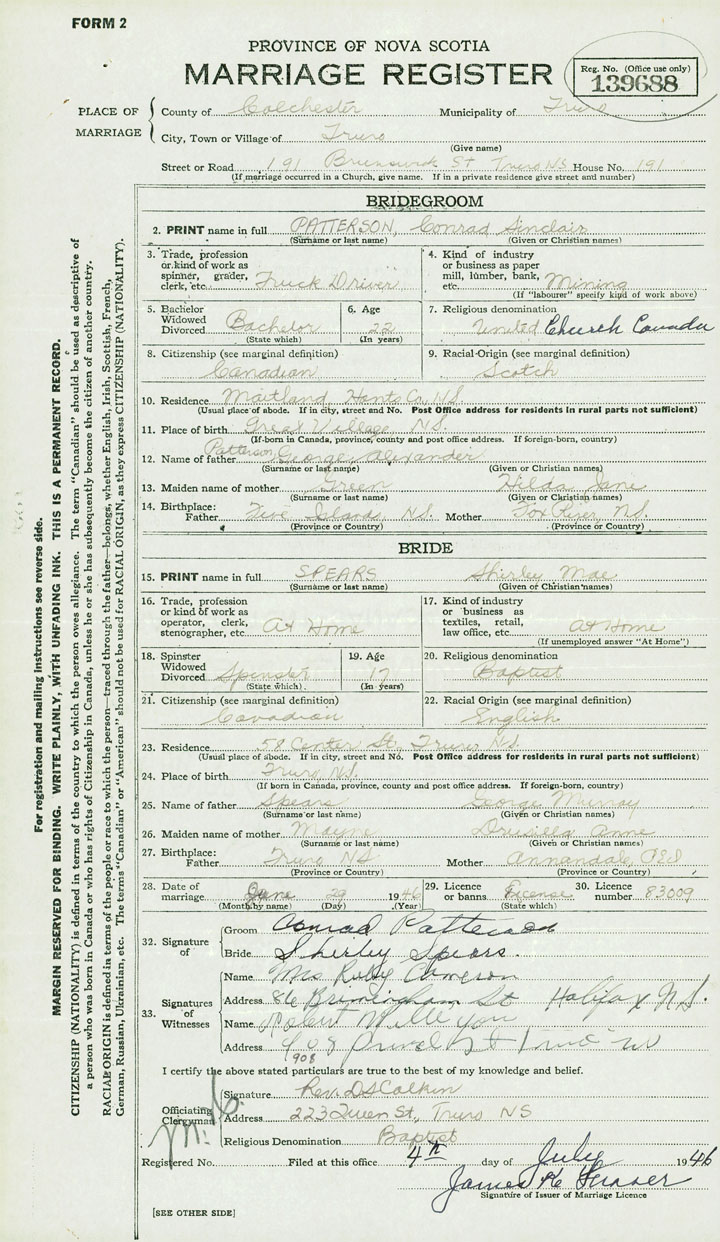 FORM 2
PROVINCE OF NOVA SCOTIA
MARRIAGE REGISTER
Reg. No. (Office use only)
139688
PLACE OF MARRIAGE
County of Colchester Municipality of Truro
City, Town or Village of Truro
(Give name)
Street or Road 191 Brunswick St Truro NS House No. 191
(If marriage occurred in a Church, give name. If in a private residence give street and number)
BRIDEGROOM
2. PRINT name in full PATTERSON, Conrad Sinclair
(Surname or last name) (Given or Christian names)
3. Trade, profession or kind of work as spinner, grader, clerk, etc. Truck Driver
4. Kind of industry or business as paper mill, lumber, bank, etc. Mining
(If "labourer" specify kind of work above)
5. Bachelor Widowed Divorced Bachelor
(State which)
6. Age 22
(In years)
7. Religious denomination
United Church Canada
8. Citizenship (see marginal definition)
Canadian
9. Racial Origin (see marginal definition)
Scotch
10. Residence Maitland Hants Co, N.S.
(Usual place of abode. If in city, street and No. Post Office address for residents in rural parts not sufficient)
11. Place of birth Great Village, N.S.
(If born in Canada, province, county and post office address. If foreign-born, country)
12. Name of father Patterson George Alexander
(Surname or last name) (Given or Christian names)
13. Maiden name of mother Green Hilda Jane
(Surname or last name) (Given or Christian names)
14. Birthplace: Father Five Islands, N.S. Mother Fox River, N.S.
(Province or Country) (Province or Country)
BRIDE
15. PRINT name in full SPEARS Shirley Mae
(Surname or last name) (Given or Christian names)
16. Trade, profession or kind of work as operator, clerk, stenographer, etc. At Home
17. Kind of industry or business as textiles, retail, law office, etc. At Home
(If unemployed answer "At Home")
18. Spinster Widowed Divorced Spinster
(State which)
19. Age 17
(In years)
20. Religious denomination
Baptist
21. Citizenship (see marginal definition)
Canadian
22. Racial Origin (see marginal definition)
English
23. Residence Center St, Truro NS
(Usual place of abode. If in city, street and No. Post Office address for residents in rural parts not sufficient)
24. Place of birth Truro, N.S.
(If born in Canada, province, county and post office address. If foreign-born, country)
25. Name of father Spears George Murray
(Surname or last name) (Given or Christian names)
26. Maiden name of mother Mayne Drusilla Anne
(Surname or last name) (Given or Christian names)
27. Birthplace: Father Truro NS Mother Annandale, PEI
(Province or Country) (Province or Country)
28. Date of marriage June 29 1946
(Month by name) (Day) (Year)
29. Licence or banns License
(State which)
30. Licence number 83009
32. Signature of
Groom Conrad Patterson
Bride Shirley Spears.
33. Signatures of Witnesses
Name Mrs Ruby Cameron
Address 86 Birmingham St Halifax N.S.
Name Robert
Address 908 St Truro NS
908
I certify the above stated particulars are true to the best of my knowledge and belief.
Officiating Clergyman
Signature Rev. D S Colkin
Address 223 Queen St, Truro NS
Religious Denomination Baptist
Registered No. Filed at this office 4th day of July 1946
James Fraser
Signature of Issuer of Marriage Licence
[SEE OTHER SIDE]
For registration and mailing instructions see reverse side.
MARGIN RESERVED FOR BINDING. WRITE PLAINLY, WITH UNFADING INK. THIS IS A PERMANENT RECORD.
CITIZENSHIP (NATIONALITY) is defined in terms of the country to which the person owes allegiance. The term "Canadian" should be used as descriptive of
a person who was born in Canada or who has rights of Citizenship in Canada, unless he or she has subsequently become the citizen of another country.
RACIAL ORIGIN is defined in terms of the people or race to which the person—traced through the father—belongs, whether English, Irish, Scottish, French,
German, Russian, Ukrainian, etc. The terms "Canadian" or "American" should not be used for RACIAL ORIGIN, as they express CITIZENSHIP (NATIONALITY).